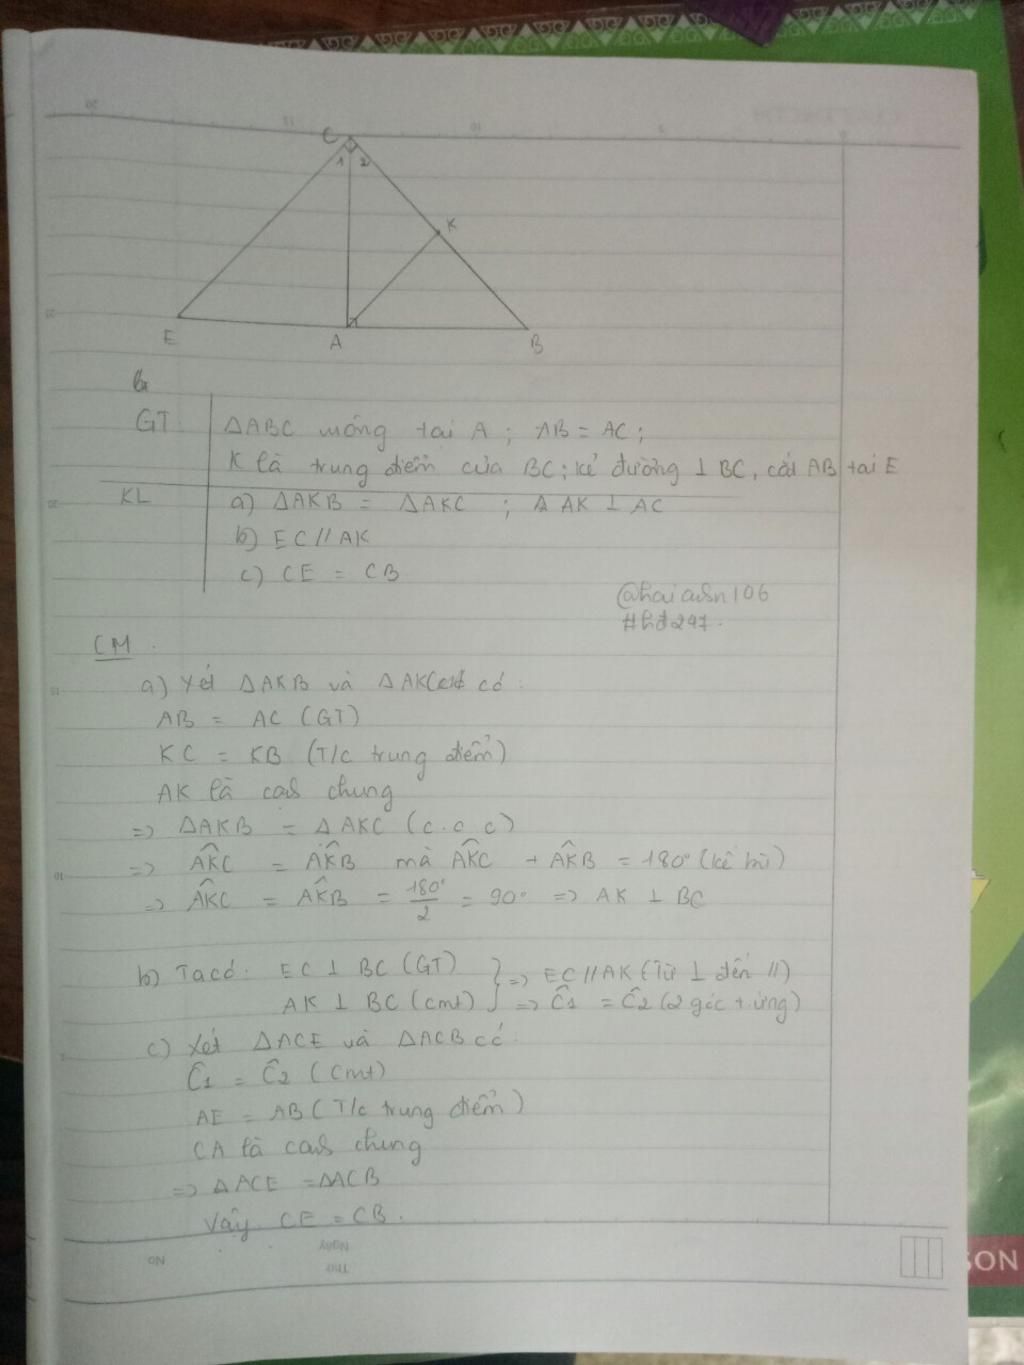 C
1 2
K
E
A
B
GT
ΔABC vuông tại A ; AB = AC ;
K là trung điểm của BC ; kẻ đường ⊥ BC, cắt AB tại E
KL
a) ΔAKB = ΔAKC ; AK ⊥ AC
b) EC // AK
c) CE = CB
#hđ247.
CM
a) Xét ΔAKB và ΔAKC có :
AB = AC (GT)
KC = KB (T/c trung điểm)
AK là cạnh chung
=> ΔAKB = ΔAKC (c.c.c)
=> \widehat{AKC} = \widehat{AKB} mà \widehat{AKC} + \widehat{AKB} = 180° (kề bù)
=> \widehat{AKC} = \widehat{AKB} = 180°/2 = 90° => AK ⊥ BC
b) Ta có : EC ⊥ BC (GT) } => EC // AK (Từ ⊥ đến //)
AK ⊥ BC (cmt) } => Ĉ1 = Ĉ2 (2 góc t.ứng)
c) Xét ΔACE và ΔACB có :
Ĉ1 = Ĉ2 (cmt)
AE = AB (T/c trung điểm)
CA là cạnh chung
=> ΔACE = ΔACB
Vậy CE = CB .
Ngày
Thứ
No
SON